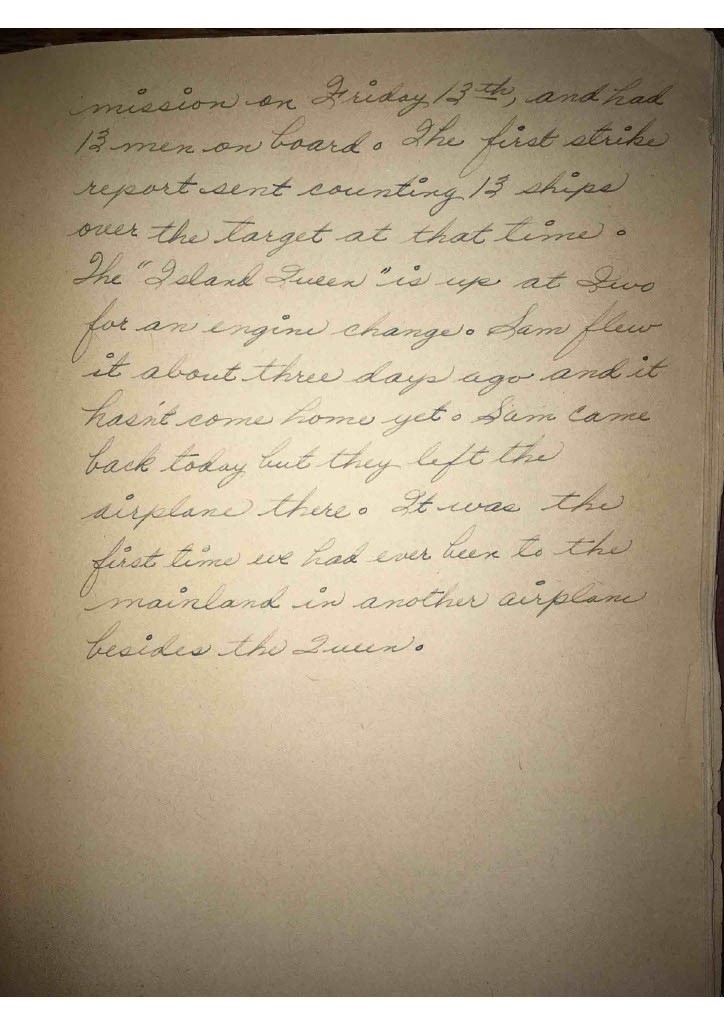 mission on Friday 13th, and had
13 men on board. The first strike
report sent counting 13 ships
over the target at that time.
The "Island Queen" is up at Iwo
for an engine change. Sam flew
it about three days ago and it
hasn't come home yet. Sam came
back today but they left the
airplane there. It was the
first time we had ever been to the
mainland in another airplane
besides the Queen.